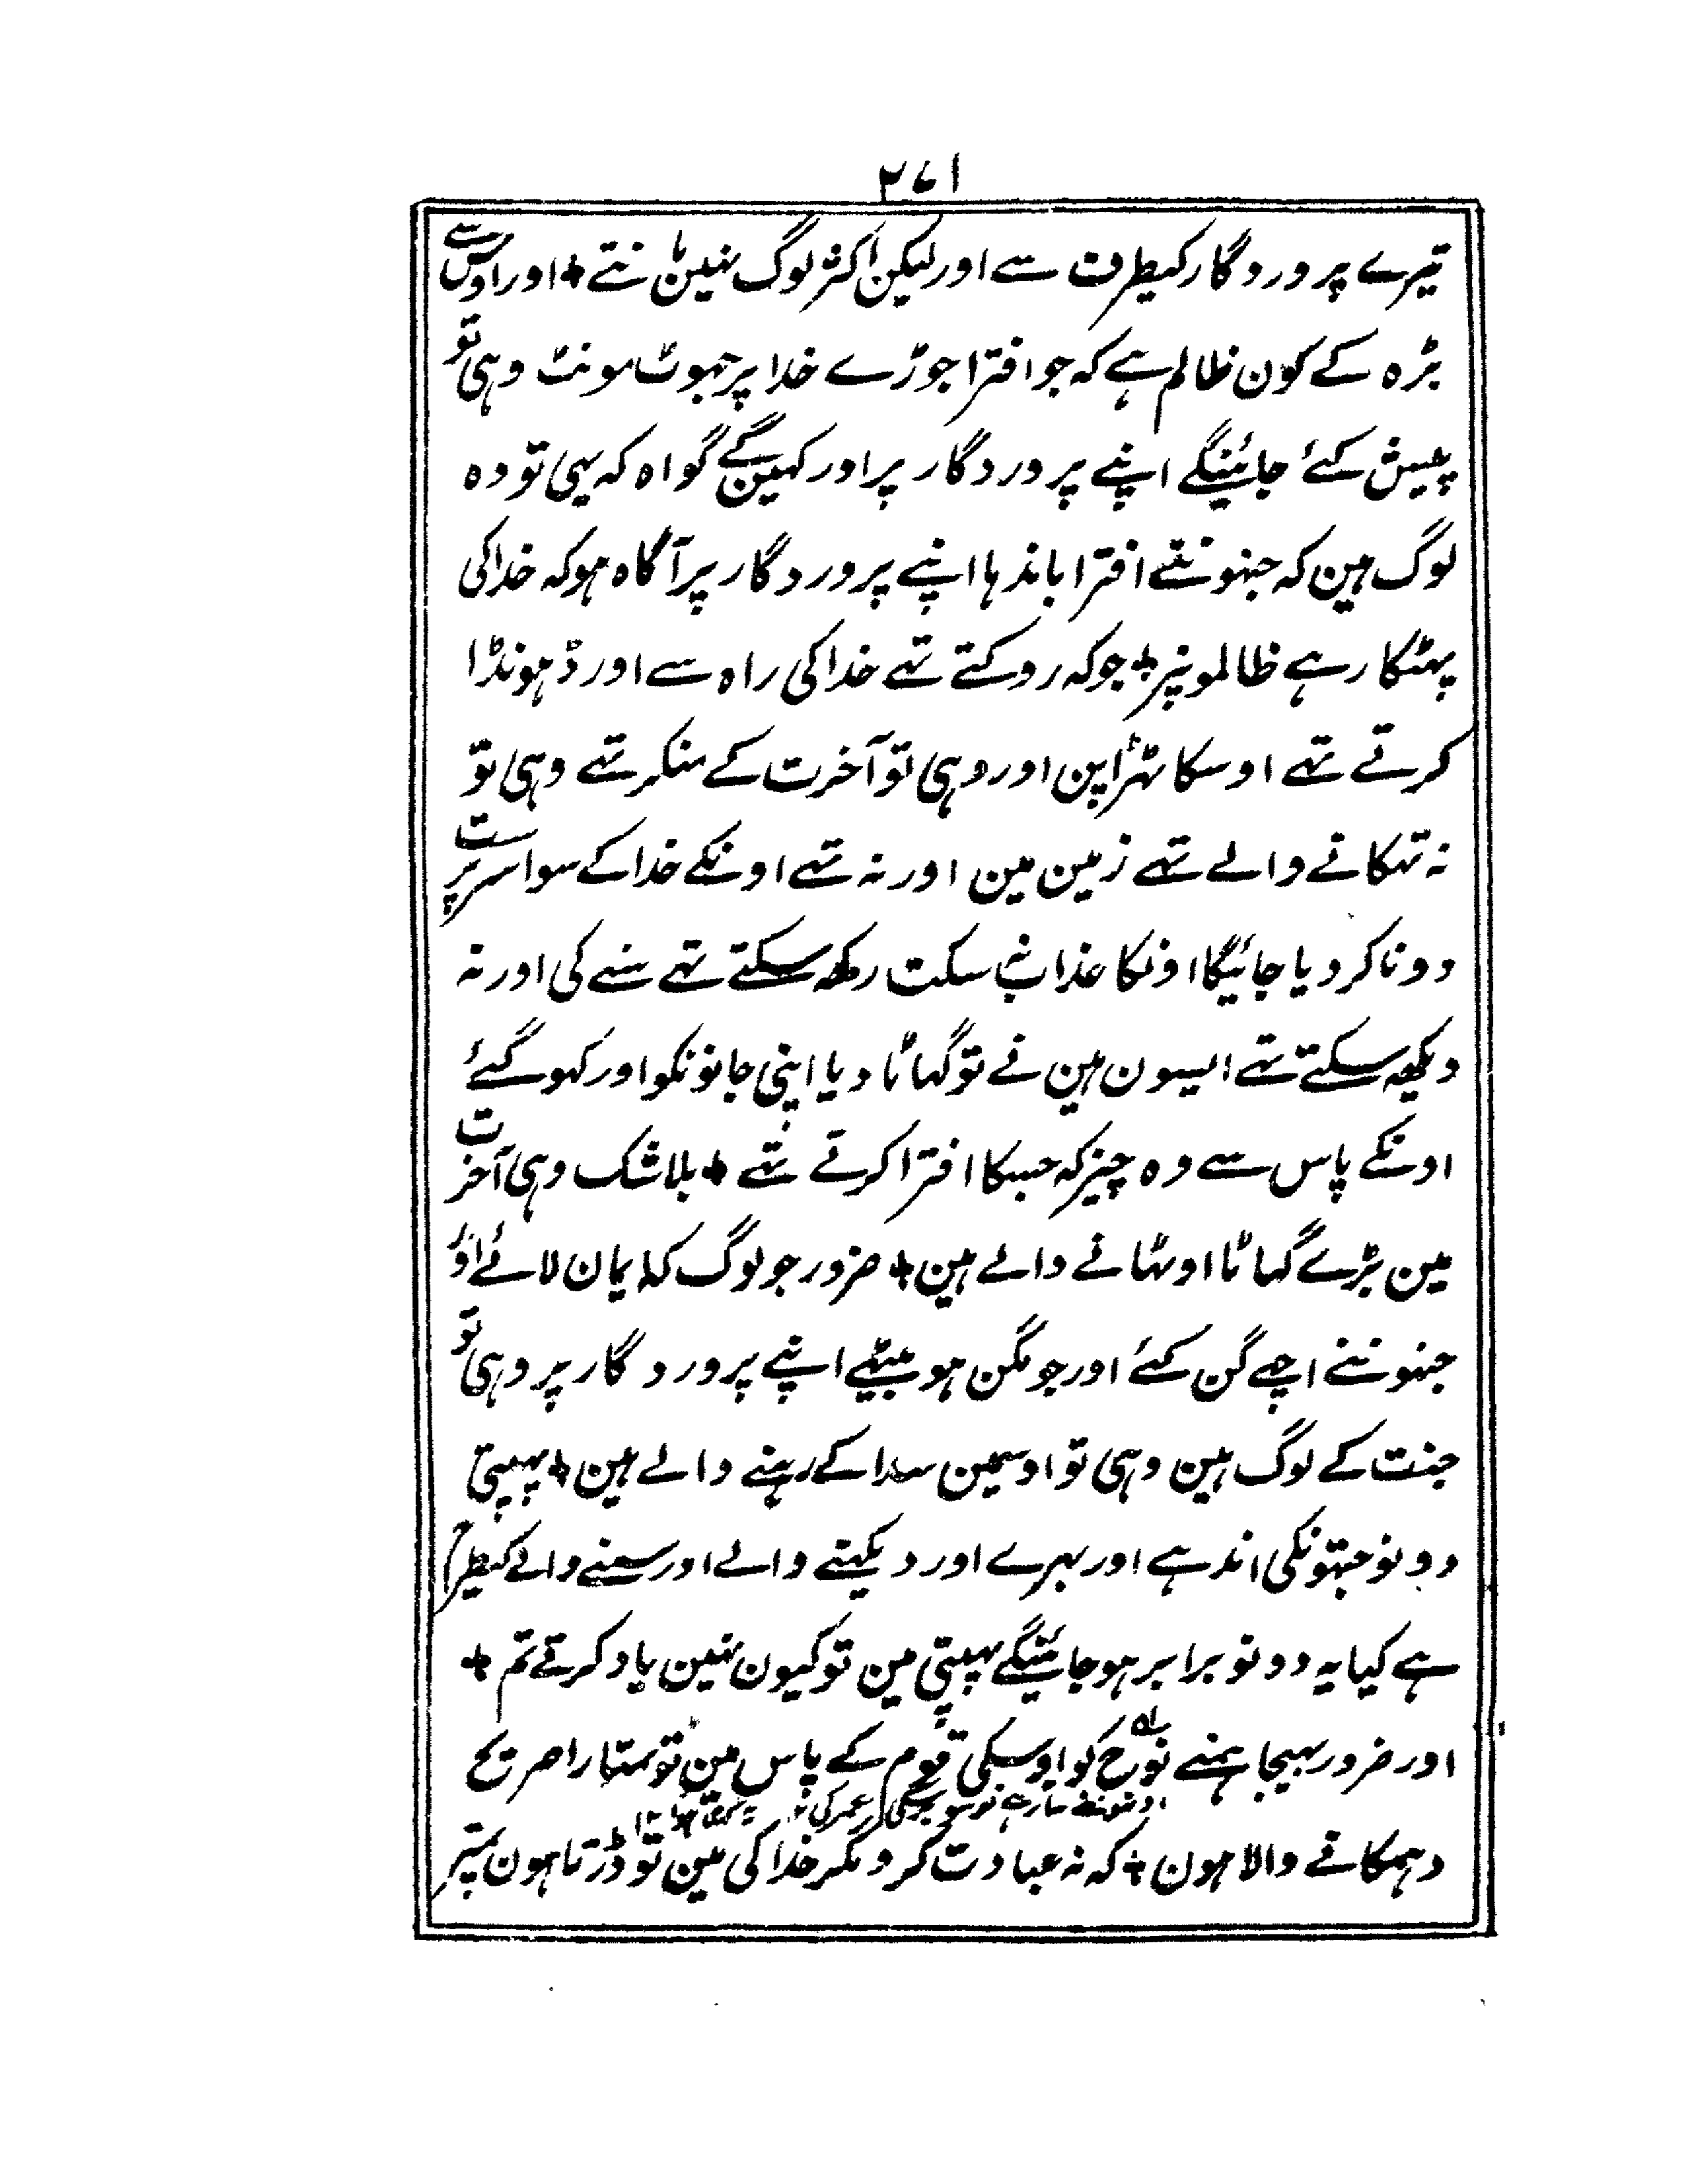 ۲۷۱
تیرے پروردگار کیطرف سے اور لیکن اکثر لوگ نہین مانتے + اور اوس سے
بڑہ کے کون ظالم ہے کہ جو افترا جوڑے خدا پر جہوٹ مونٹ وہی تو
پیش کئے جائینگے اپنے پروردگار پر اور کہین گے گواہ کہ یہی تو وہ
لوگ ہین کہ جنہونے افترا باندہا اپنے پروردگار پر آگاہ ہو کہ خدا کی
پہٹکار ہے ظالمونپر + جو کہ روکتے تہے خدا کی راہ سے اور ڈہونڈا
کرتے تہے اوسکا ٹہڑاپن اور وہی تو آخرت کے منکر تہے وہی تو
نہ تہکانے والے تہے زمین مین اور نہ تہے اونکے خدا کے سوا سرپرست
دونا کر دیا جائیگا اونکا عذاب نہ سکت رکہہ سکتے تہے سننے کی اور نہ
دیکہہ سکتے تہے ایسون ہین نے تو گہاٹا دیا اپنی جانونکو اور کہو گئے
اونکے پاس سے وہ چیز کہ جسکا افترا کرتے تہے + بلا شک وہی آخرت
مین بڑے گہاٹا اوٹہانے والے ہین + ضرور جو لوگ کہ ایمان لائے اور
جنہونے اچہے گن کئے اور جو مگن ہو بیٹہے اپنے پروردگار پر وہی تو
جنت کے لوگ ہین وہی تو اوسمین سدا کے رہنے والے ہین + پہبتی
دونو جہتونکی اندہے اور بہرے اور دیکہنے والے اور سننے والے کیطرح
ہے کیا یہ دونو برابر ہو جائینگے پہبتی مین تو کیون نہین یاد کرتے تم +
اور ضرور بہیجا ہمنے نوح کو اوسکی قوم کے پاس مین تو تمہارا صریح
دہمکانے والا ہون + کہ نہ عبادت کرو مگر خدا کی مین تو ڈرتا ہون تمپر